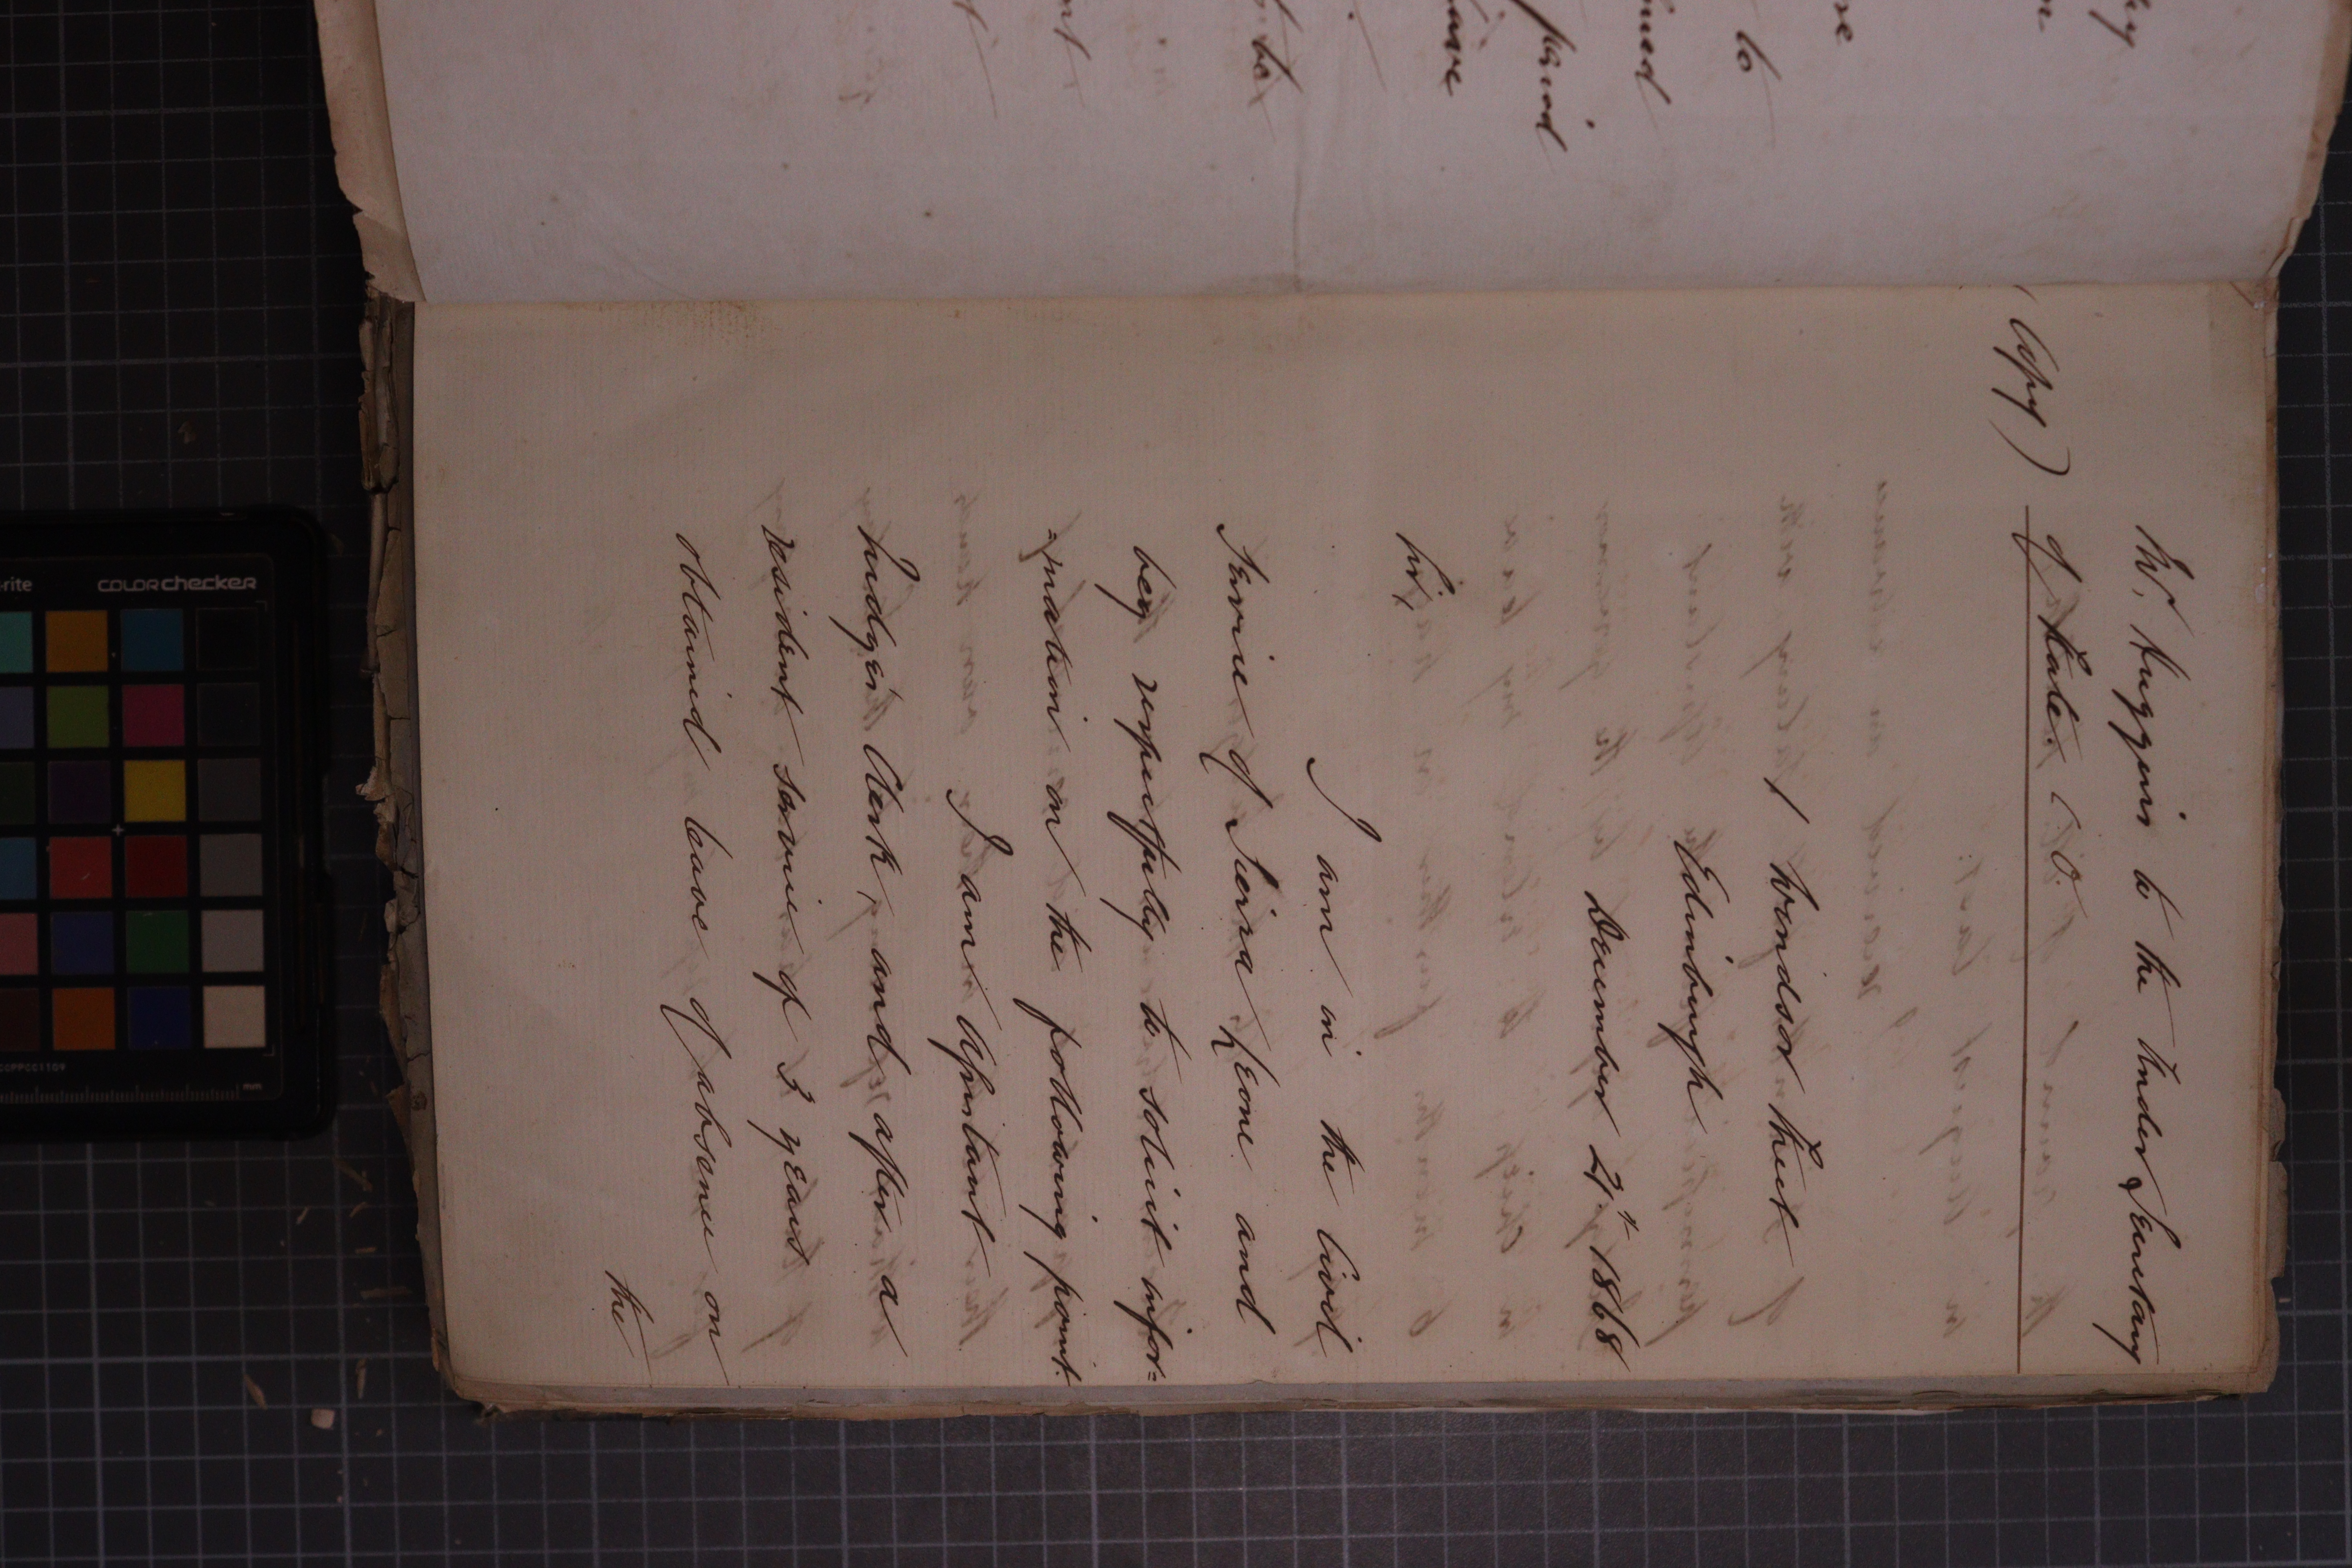 Mr. Huggins to the Under Secretary
(Copy) of State. C.O.
1 Windsor Street
Edinburgh
December 24th 1868
Sir,
I am in the Civil
Service of Sierra Leone and
beg respectfully to solicit infor=
=mation on the following point.
I am Assistant
Judges' Clerk, and after a
resident service of 3 years
obtained leave of absence on
the
to
period
have
be
COLORchecker